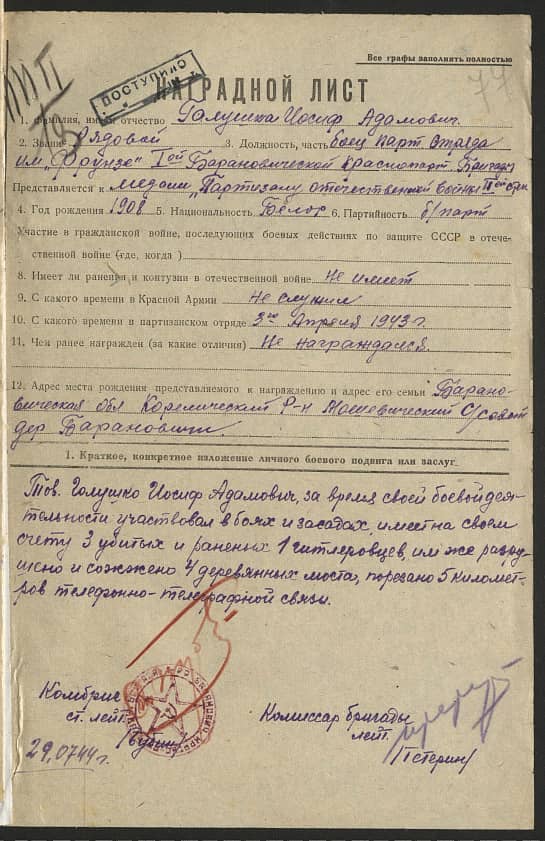 Все графы заполнять полностью
77
ПОСТУПИЛО
НАГРАДНОЙ ЛИСТ
1. Фамилия, имя и отчество Галушка Иосиф Адамович.
2. Звание Рядовой 3. Должность, часть боец парт. Отряда
им. „Фрунзе" 1ой Барановической краснопарт. Бригады
Представляется к медали „Партизану отечественной войны IIой степ
4. Год рождения 1908 5. Национальность Белор 6. Партийность б/парт
Участие в гражданской войне, последующих боевых действиях по защите СССР в отече-
ственной войне (где, когда)
8. Имеет ли ранения и контузии в отечественной войне Не имеет
9. С какого времени в Красной Армии Не служил
10. С какого времени в партизанском отряде 3го Апреля 1943 г.
11. Чем ранее награжден (за какие отличия) Не награждался.
12. Адрес места рождения представляемого к награждению и адрес его семьи Барано-
вическая обл Кореличский Р-н Мошевический С/совет
дер Барановичи.
1. Краткое, конкретное изложение личного боевого подвига или заслуг
Тов. Голушко Иосиф Адамович, за время своей боевой дея-
тельности участвовал в боях и засадах, имеет на своем
счету 3 убитых и раненых 1 гитлеровцев, им же разру-
шено и сожжено 4 деревянных моста, порезано 5 километ-
ров телефонно-телеграфной связи.
Комбриг
ст. лейт.
Комиссар бригады
лейт.
29.07.44 г.
/Петерин/